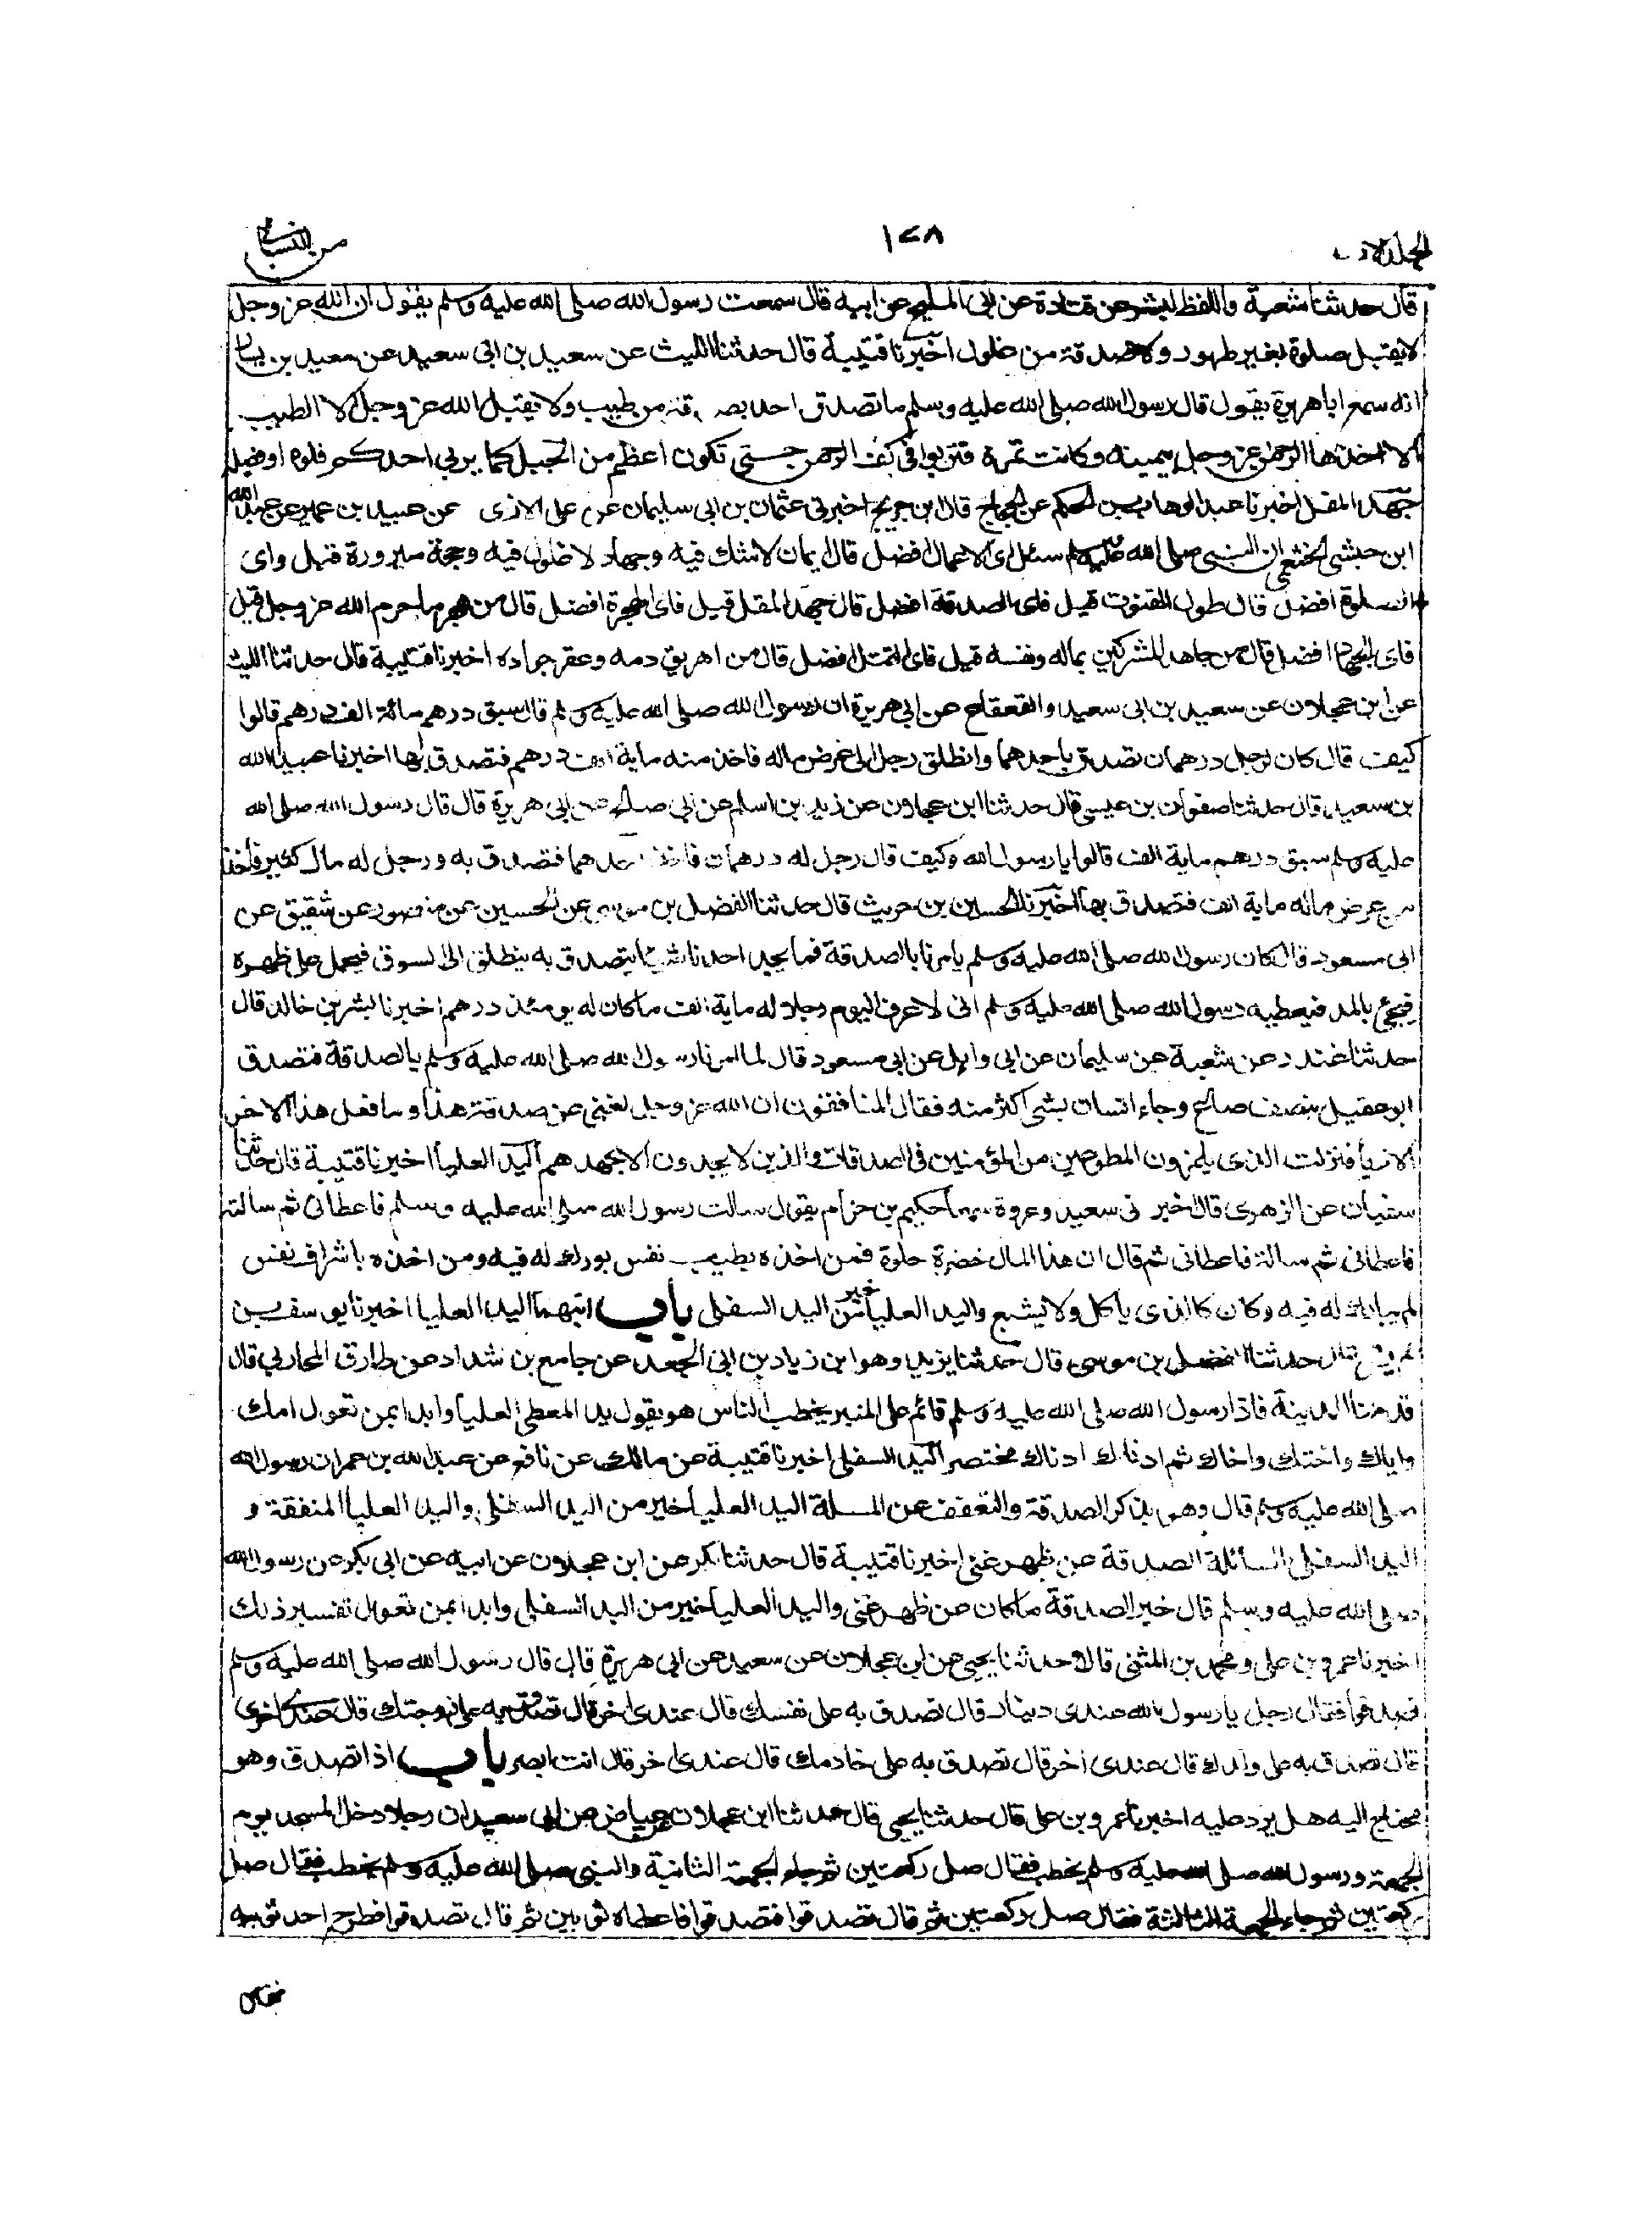 المجلد الاول
١٧٨
من النسائي
قال حدثنا شعبة واللفظ لبشر عن قتادة عن ابى المليح عن ابيه قال سمعت رسول الله صلى الله عليه وسلم يقول ان الله عز وجل
لا يقبل صلوة بغير طهور ولا صدقة من غلول اخبرنا قتيبة قال حدثنا الليث عن سعيد بن ابى سعيد عن سعيد بن يسار
انه سمع ابا هريرة يقول قال رسول الله صلى الله عليه وسلم ما تصدق احد بصدقة من طيب ولا يقبل الله عز وجل الا الطيب
الا اخذها الرحمن عز وجل بيمينه وكانت تمرة فتربوا فى كف الرحمن حتى تكون اعظم من الجبل كما يربي احدكم فلوه او فصيله
جهد المقل اخبرنا عبد الوهاب بن الحكم عن الحجاج قال ابن جريج اخبرنى عثمان بن ابى سليمان عن على الازدى عن عبيد بن عمير عن عبد الله
ابن حبشى الخثعمى ان النبى صلى الله عليه وسلم سئل اى الاعمال افضل قال ايمان لا شك فيه وجهاد لا غلول فيه وحجة مبرورة قيل واى
الصلوة افضل قال طول القنوت قيل فاى الصدقة افضل قال جهد المقل قيل فاى الهجرة افضل قال من هجر ما حرم الله عز وجل قيل
فاى الجهاد افضل قال من جاهد المشركين بماله ونفسه قيل فاى القتل افضل قال من اهريق دمه وعقر جواده اخبرنا قتيبة قال حدثنا الليث
عن ابن عجلان عن سعيد بن ابى سعيد والقعقاع عن ابى هريرة ان رسول الله صلى الله عليه وسلم قال سبق درهم مائة الف درهم قالوا
كيف قال كان لرجل درهمان تصدق باحدهما وانطلق رجل الى عرض ماله فاخذ منه ماية الف درهم فتصدق بها اخبرنا عبيد الله
بن سعيد قال حدثنا صفوان بن عيسى قال حدثنا ابن عجلان عن زيد بن اسلم عن ابى صالح عن ابى هريرة قال قال رسول الله صلى الله
عليه وسلم سبق درهم ماية الف قالوا يا رسول الله وكيف قال رجل له درهمان فاخذ احدهما فتصدق به ورجل له مال كثير فاخذ
من عرض ماله ماية الف فتصدق بها اخبرنا الحسين بن حريث قال حدثنا الفضل بن موسى عن الحسين عن منصور عن شقيق عن
ابى مسعود قال كان رسول الله صلى الله عليه وسلم يامرنا بالصدقة فما يجد احدنا شيئا يتصدق به ينطلق الى السوق فيحمل على ظهره
فيجئ بالمد فيعطيه رسول الله صلى الله عليه وسلم انى لاعرف اليوم رجلا له ماية الف ما كان له يومئذ درهم اخبرنا بشر بن خالد قال
حدثنا غندر عن شعبة عن سليمان عن ابى وايل عن ابى مسعود قال لما امرنا رسول الله صلى الله عليه وسلم بالصدقة فتصدق
ابو عقيل بنصف صاع وجاء انسان بشئ اكثر منه فقال المنافقون ان الله عز وجل لغنى عن صدقة هذا وما فعل هذا الاخر
الا رياْ فنزلت الذى يلمزون المطوعين من المؤمنين فى الصدقات والذين لا يجدون الا جهدهم اليد العليا اخبرنا قتيبة قال حدثنا
سفيان عن الزهرى قال اخبرنى سعيد وعروة سمعا حكيم بن حزام يقول سالت رسول الله صلى الله عليه وسلم فاعطانى ثم سالته
فاعطانى ثم سالته فاعطانى ثم قال ان هذا المال خضرة حلوة فمن اخذه بطيب نفس بورك له فيه ومن اخذه باشراف نفس
لم يبارك له فيه وكان كالذى ياكل ولا يشبع واليد العليا خير من اليد السفلى باب ايتهما اليد العليا اخبرنا يوسف بن
عيسى قال حدثنا الفضل بن موسى قال حدثنا يزيد وهو ابن زياد بن ابى الجعد عن جامع بن شداد عن طارق المحاربي قال
قدمنا المدينة فاذا رسول الله صلى الله عليه وسلم قائم على المنبر يخطب الناس هو يقول يد المعطى العليا وابدا بمن تعول امك
واباك واختك واخاك ثم ادناك ادناك مختصر اليد السفلى اخبرنا قتيبة عن مالك عن نافع عن عبد الله بن عمر ان رسول الله
صلى الله عليه وسلم قال وهو يذكر الصدقة والتعفف عن المسئلة اليد العليا خير من اليد السفلى واليد العليا المنفقة و
اليد السفلى السائلة الصدقة عن ظهر غنى اخبرنا قتيبة قال حدثنا بكر عن ابن عجلان عن ابيه عن ابى بكر عن رسول الله
صلى الله عليه وسلم قال خير الصدقة ما كان عن ظهر غنى واليد العليا خير من اليد السفلى وابدا بمن تعول تفسير ذلك
اخبرنا عمرو بن على ومحمد بن المثنى قالا حدثنا يحيى عن ابن عجلان عن سعيد عن ابى هريرة قال قال رسول الله صلى الله عليه وسلم
تصدقوا فقال رجل يا رسول الله عندى دينار قال تصدق به على نفسك قال عندى اخر قال تصدق به على زوجتك قال عندى اخر
قال تصدق به على ولدك قال عندى اخر قال تصدق به على خادمك قال عندى اخر قال انت ابصر باب اذا تصدق وهو
محتاج اليه هل يرد عليه اخبرنا عمرو بن على قال حدثنا يحيى قال حدثنا ابن عجلان عن عياض عن ابى سعيد ان رجلا دخل المسجد يوم
الجمعة ورسول الله صلى الله عليه وسلم يخطب فقال صل ركعتين ثم جاء الجمعة الثانية والنبى صلى الله عليه وسلم يخطب فقال صل
ركعتين ثم جاء الجمعة الثالثة فقال صل ركعتين ثم قال تصدقوا فتصدقوا فاعطاه ثوبين ثم قال تصدقوا فطرح احد ثوبيه
فقال